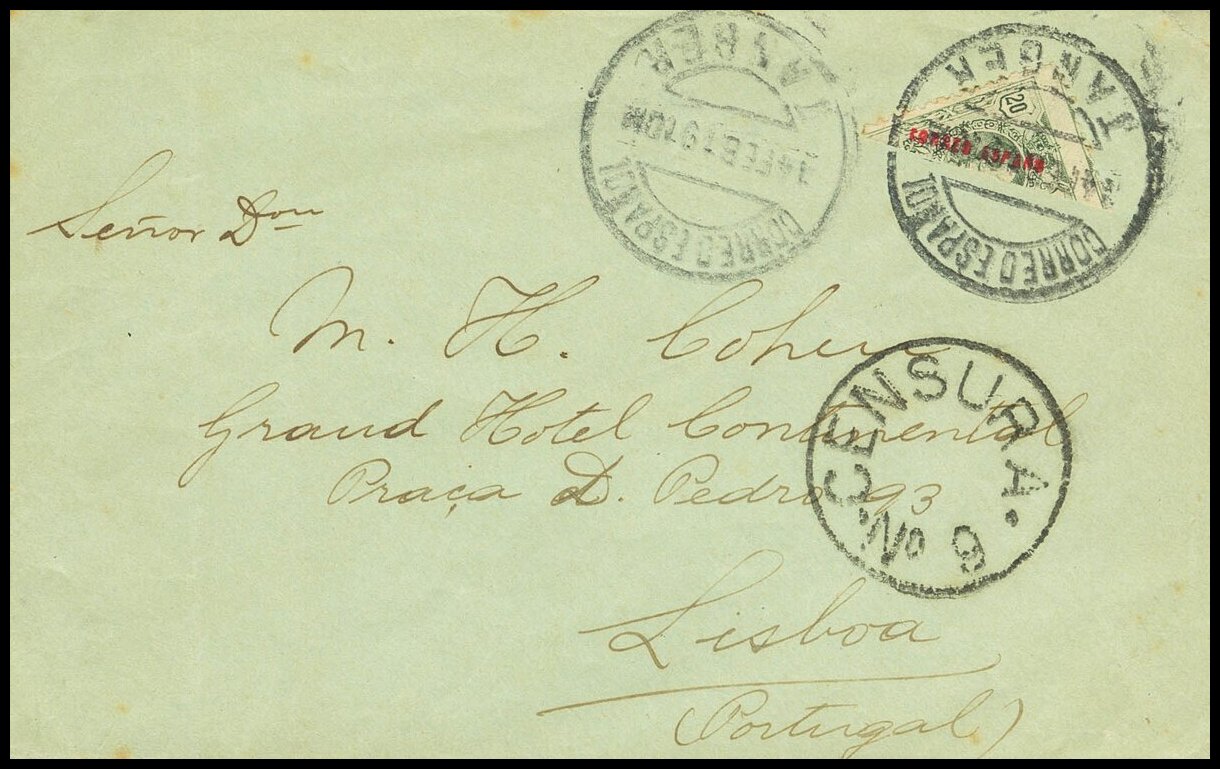 TANGER
14 FEB 19 10M
CORREO ESPAÑOL
TANGER
CORREO ESPAÑOL
20
CORREO ESPAÑOL
Señor Don
M. H. Cohen
Grand Hotel Continental
Praça D. Pedro 93
Lisboa
(Portugal)
CENSURA
Nº 6